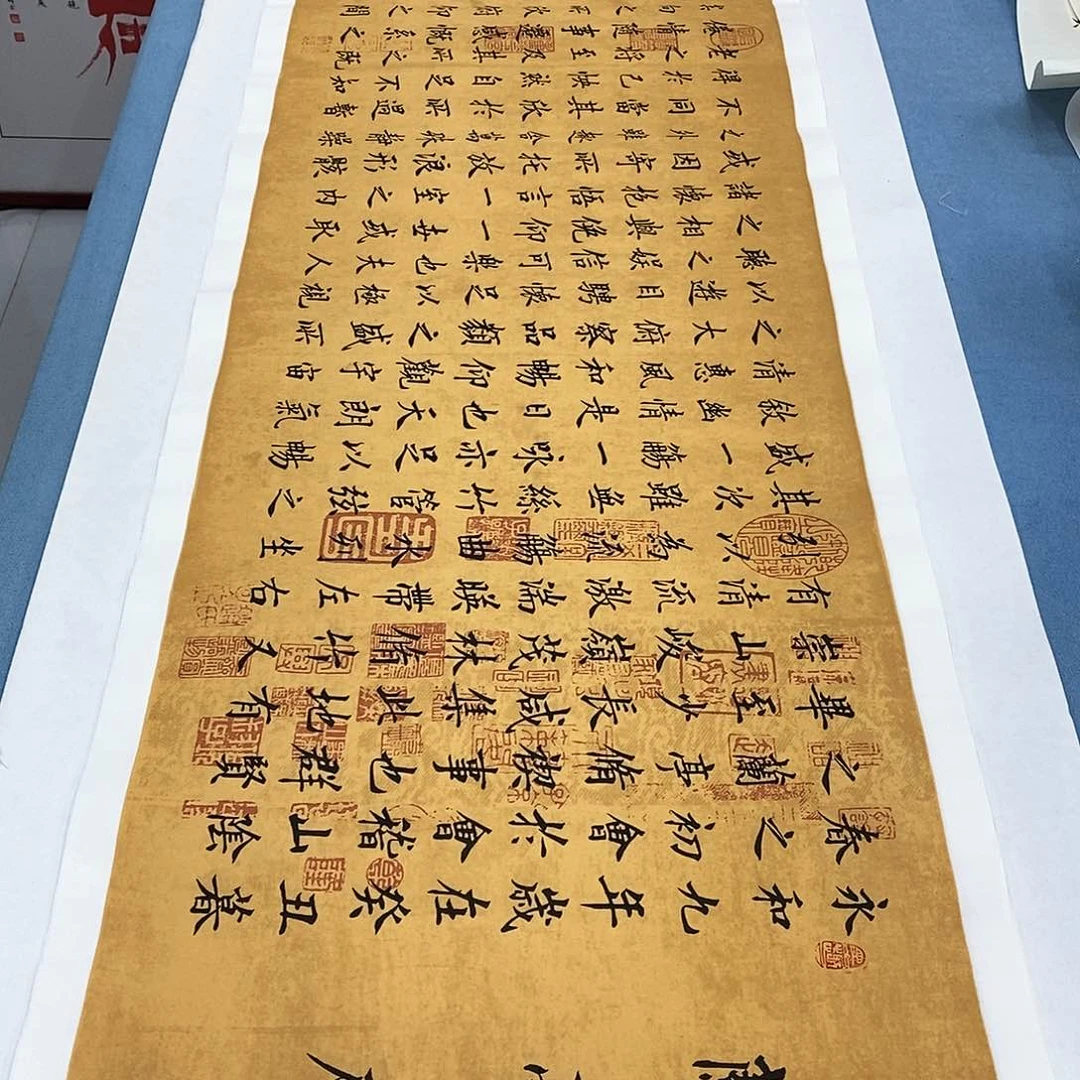 永和九年歲在癸丑暮
春之初會於會稽山陰
之蘭亭脩禊事也群賢
畢至少長咸集此地有
崇山峻嶺茂林脩竹又
有清流激湍暎帶左右
引以為流觴曲水列坐
其次雖無絲竹管弦之
盛一觴一詠亦足以暢
敘幽情是日也天朗氣
清惠風和暢仰觀宇宙
之大俯察品類之盛所
以遊目騁懷足以極視
聽之娛信可樂也夫人
之相與俛仰一世或取
諸懷抱悟言一室之內
或因寄所托放浪形骸
之外雖趣舍萬殊靜躁
不同當其欣於所遇暫
得於己怏然自足不知
老之將至及其所之既
惓情隨事遷感慨係之
向之所欣俛仰之間